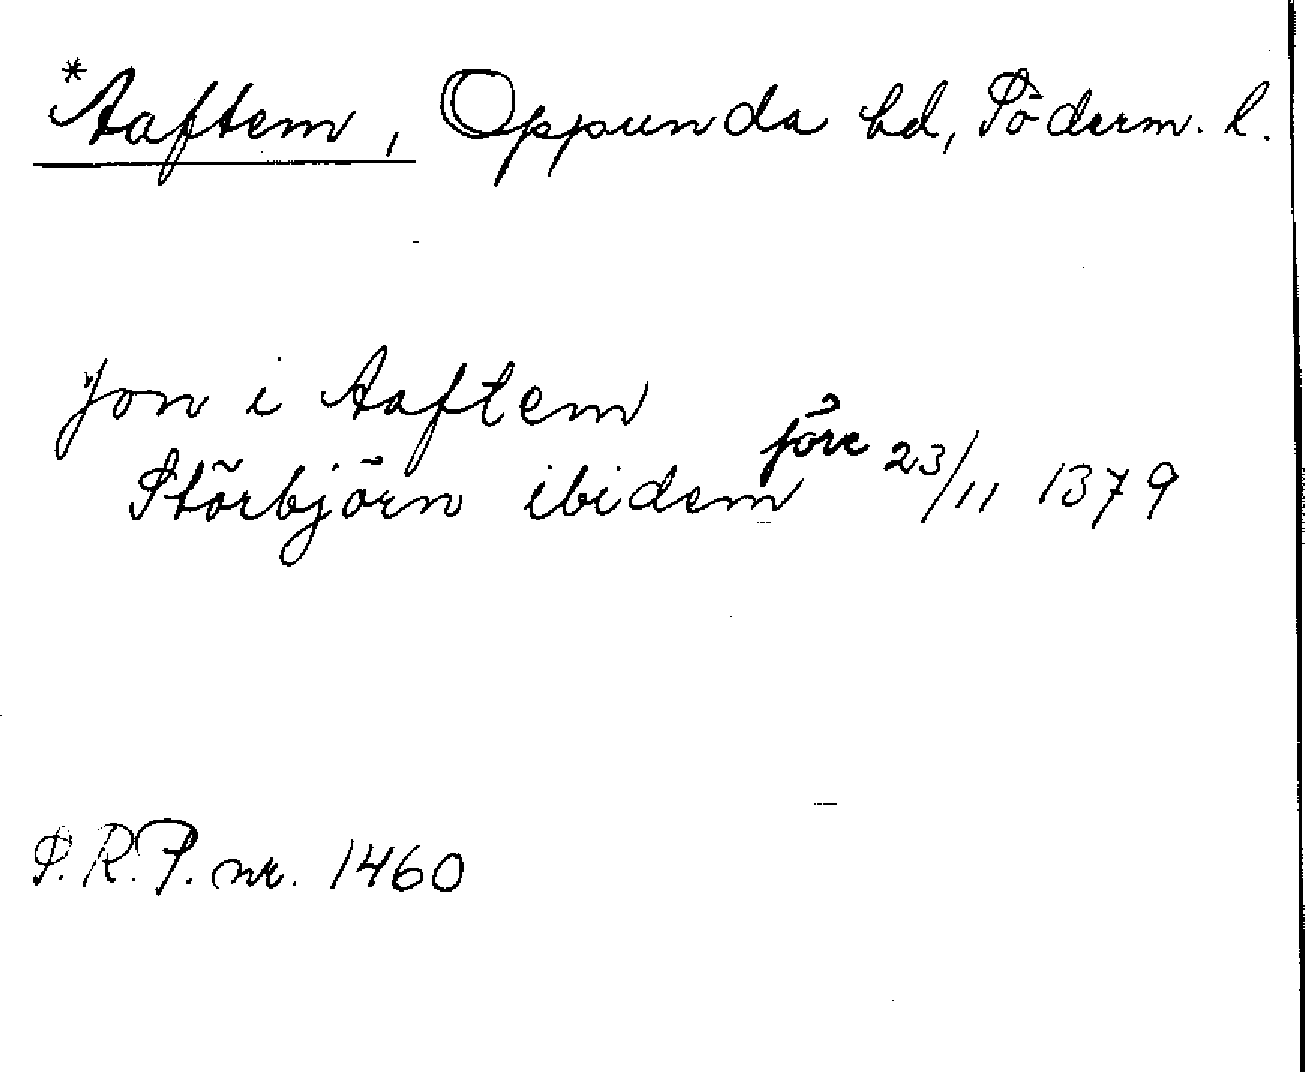 *Aaftem, Oppunda hd, Söderm. l.
Jon i Aaftem
Störbjörn ibidem före 23/11 1379
S.R.P. nr. 1460